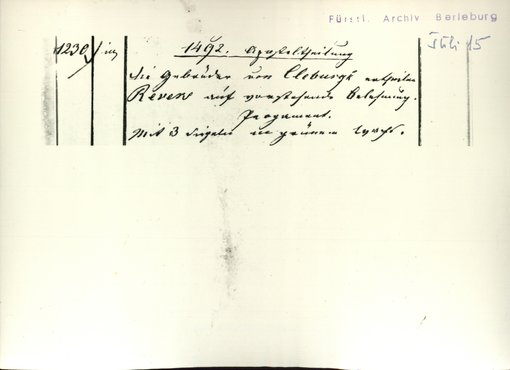 Fürstl. Archiv Berleburg
1230
1492. Aposteltheilung
die Gebrüder von Cleburgk ertheilen
Revers auf vorstehende Belehnung.
Pergament.
Mit 3 Siegeln in grünem Wachs.